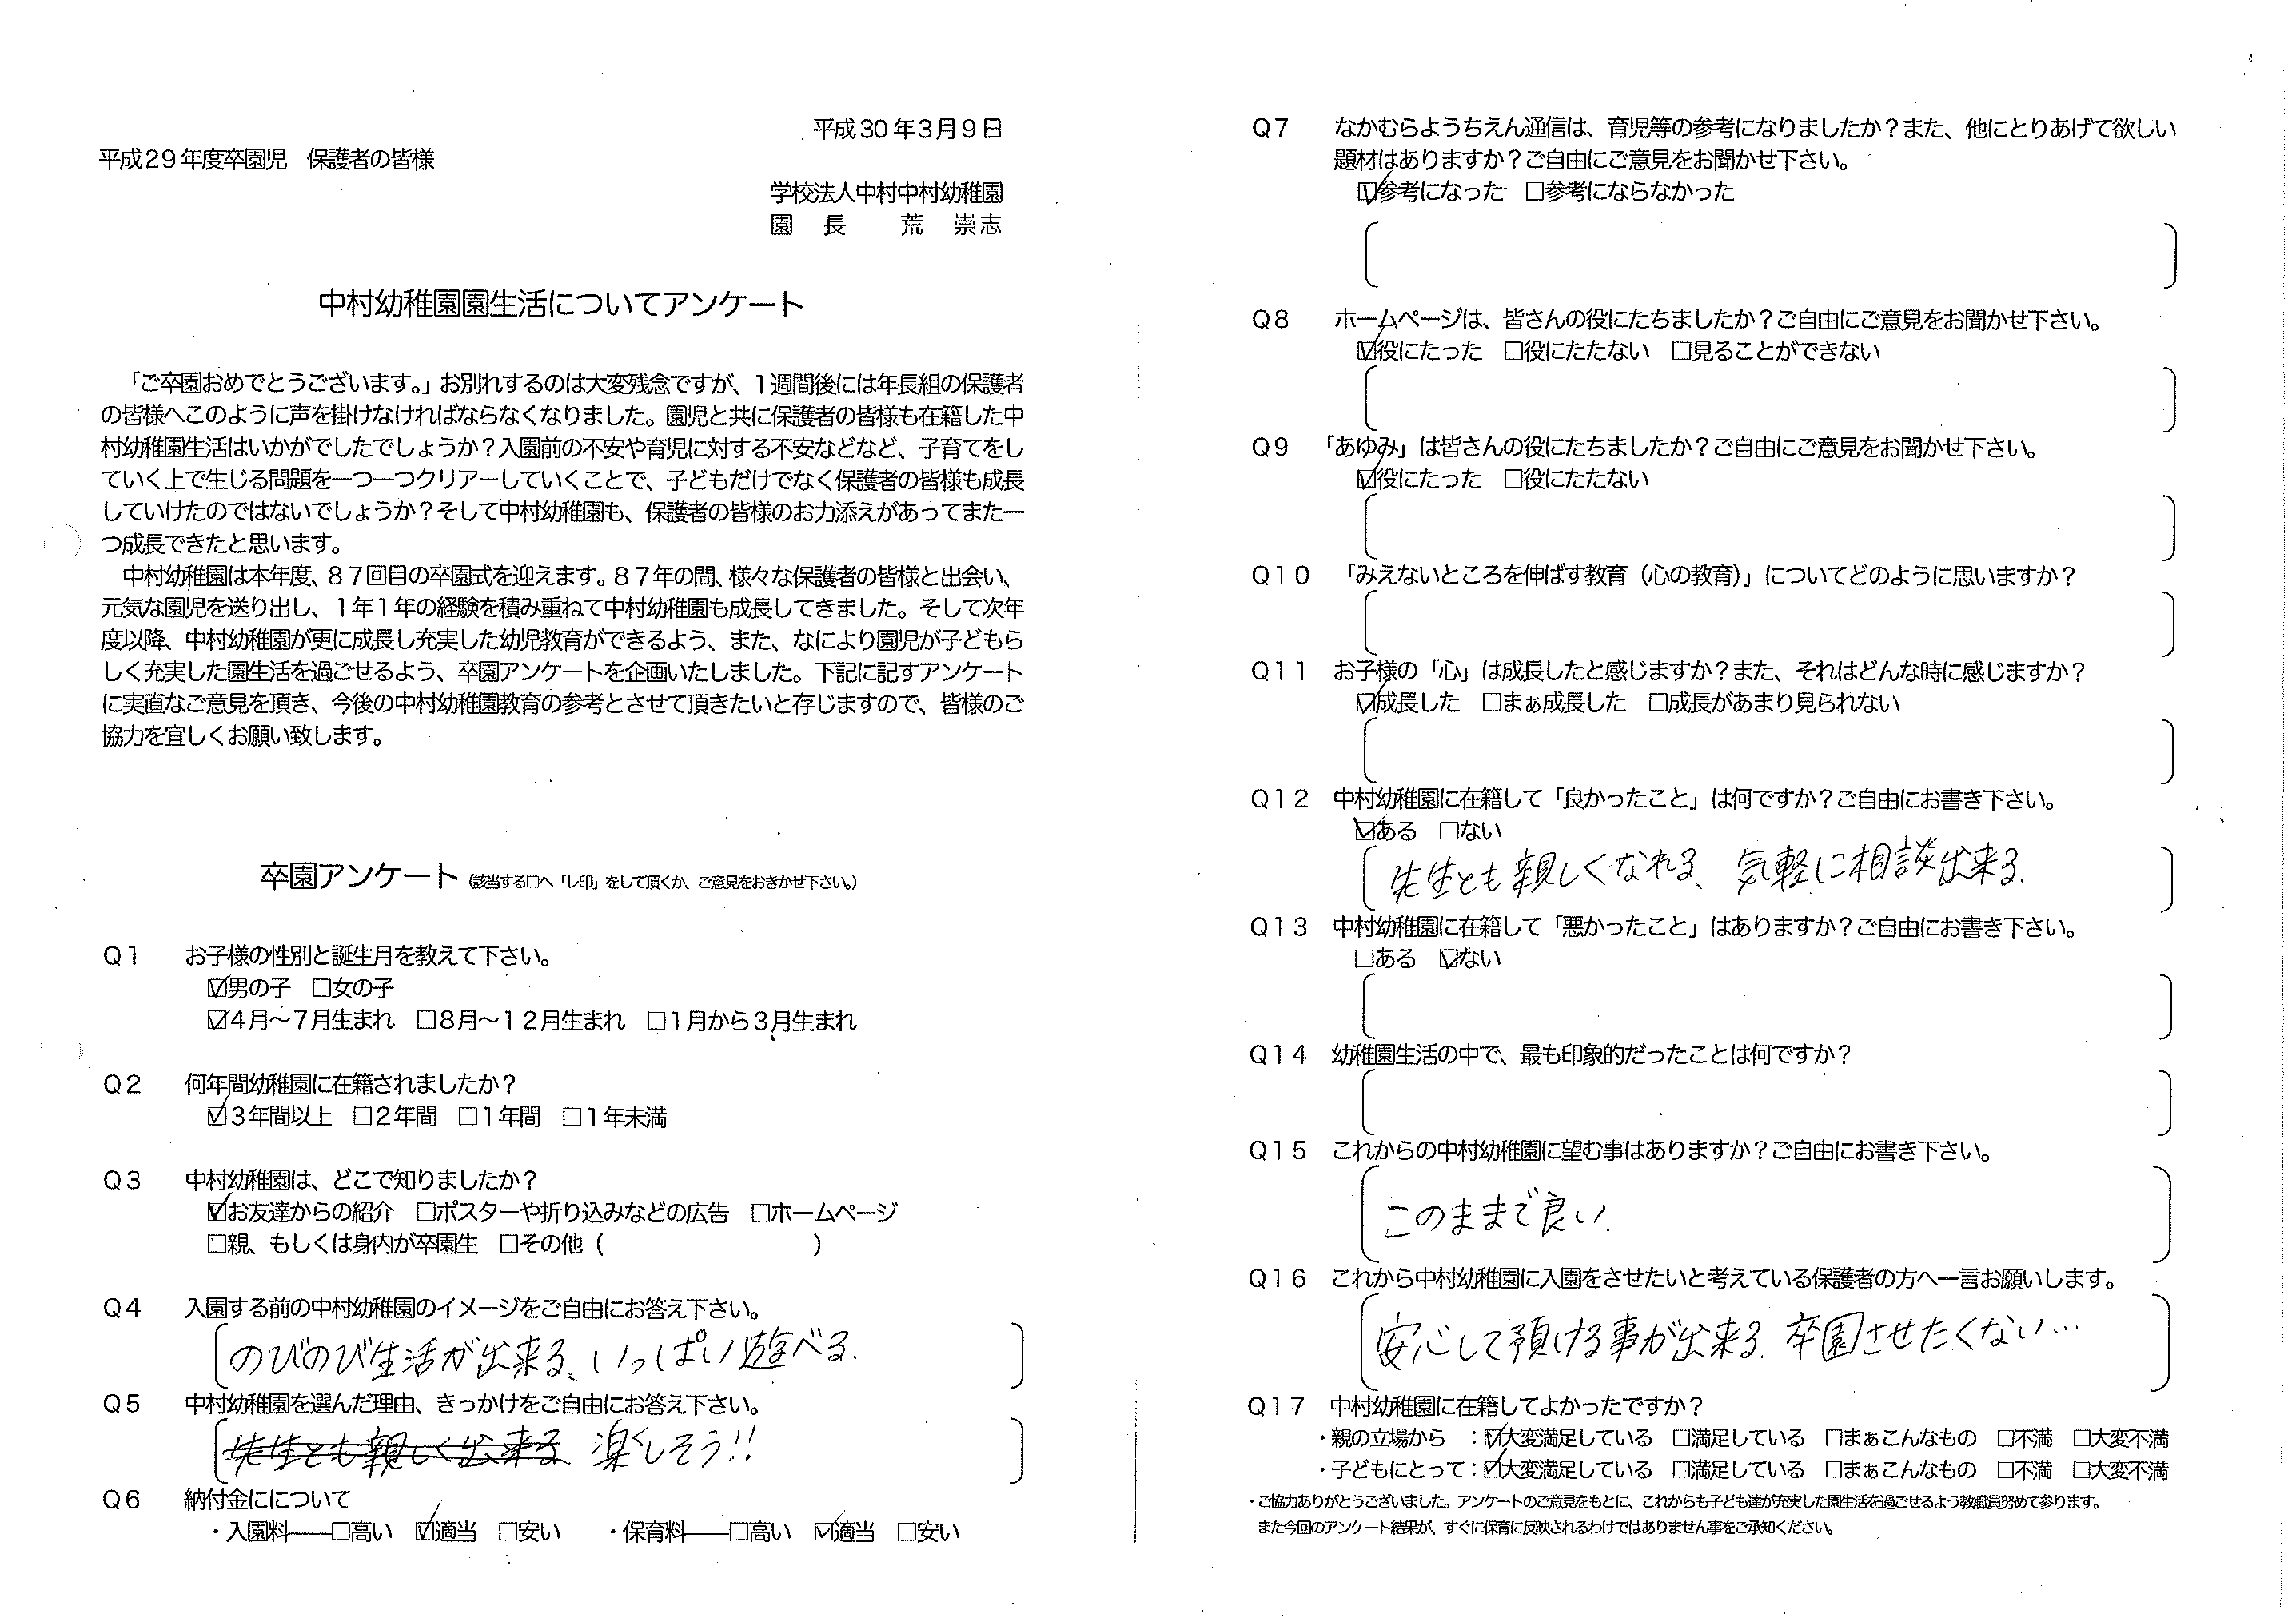 平成30年3月9日
平成29年度卒園児　保護者の皆様
学校法人中村中村幼稚園
園　長　　荒　崇志
中村幼稚園園生活についてアンケート
「ご卒園おめでとうございます。」お別れするのは大変残念ですが、1週間後には年長組の保護者
の皆様へこのように声を掛けなければならなくなりました。園児と共に保護者の皆様も在籍した中
村幼稚園生活はいかがでしたでしょうか？入園前の不安や育児に対する不安などなど、子育てをし
ていく上で生じる問題を一つ一つクリアーしていくことで、子どもだけでなく保護者の皆様も成長
していけたのではないでしょうか？そして中村幼稚園も、保護者の皆様のお力添えがあってまた一
つ成長できたと思います。
中村幼稚園は本年度、87回目の卒園式を迎えます。87年の間、様々な保護者の皆様と出会い、
元気な園児を送り出し、1年1年の経験を積み重ねて中村幼稚園も成長してきました。そして次年
度以降、中村幼稚園が更に成長し充実した幼児教育ができるよう、また、なにより園児が子どもら
しく充実した園生活を過ごせるよう、卒園アンケートを企画いたしました。下記に記すアンケート
に実直なご意見を頂き、今後の中村幼稚園教育の参考とさせて頂きたいと存じますので、皆様のご
協力を宜しくお願い致します。
卒園アンケート（該当する□へ「レ印」をして頂くか、ご意見をおきかせ下さい。）
Q1　お子様の性別と誕生月を教えて下さい。
☑男の子　□女の子
☑4月～7月生まれ　□8月～12月生まれ　□1月から3月生まれ
Q2　何年間幼稚園に在籍されましたか？
☑3年間以上　□2年間　□1年間　□1年未満
Q3　中村幼稚園は、どこで知りましたか？
☑お友達からの紹介　□ポスターや折り込みなどの広告　□ホームページ
□親、もしくは身内が卒園生　□その他（　　　　　　　　　　）
Q4　入園する前の中村幼稚園のイメージをご自由にお答え下さい。
のびのび生活が出来る、いっぱい遊べる.
Q5　中村幼稚園を選んだ理由、きっかけをご自由にお答え下さい。
先生とも親しく出来る 楽しそう!!
Q6　納付金にについて
・入園料――□高い　☑適当　□安い　　・保育料――□高い　☑適当　□安い
Q7　なかむらようちえん通信は、育児等の参考になりましたか？また、他にとりあげて欲しい
題材はありますか？ご自由にご意見をお聞かせ下さい。
☑参考になった　□参考にならなかった
Q8　ホームページは、皆さんの役にたちましたか？ご自由にご意見をお聞かせ下さい。
☑役にたった　□役にたたない　□見ることができない
Q9　「あゆみ」は皆さんの役にたちましたか？ご自由にご意見をお聞かせ下さい。
☑役にたった　□役にたたない
Q10　「みえないところを伸ばす教育（心の教育）」についてどのように思いますか？
Q11　お子様の「心」は成長したと感じますか？また、それはどんな時に感じますか？
☑成長した　□まぁ成長した　□成長があまり見られない
Q12　中村幼稚園に在籍して「良かったこと」は何ですか？ご自由にお書き下さい。
☑ある　□ない
先生とも親しくなれる、気軽に相談出来る.
Q13　中村幼稚園に在籍して「悪かったこと」はありますか？ご自由にお書き下さい。
□ある　☑ない
Q14　幼稚園生活の中で、最も印象的だったことは何ですか？
Q15　これからの中村幼稚園に望む事はありますか？ご自由にお書き下さい。
このままで良い.
Q16　これから中村幼稚園に入園をさせたいと考えている保護者の方へ一言お願いします。
安心して預ける事が出来る. 卒園させたくない…
Q17　中村幼稚園に在籍してよかったですか？
・親の立場から　：☑大変満足している　□満足している　□まぁこんなもの　□不満　□大変不満
・子どもにとって：☑大変満足している　□満足している　□まぁこんなもの　□不満　□大変不満
・ご協力ありがとうございました。アンケートのご意見をもとに、これからも子ども達が充実した園生活を過ごせるよう教職員努めて参ります。
また今回のアンケート結果が、すぐに保育に反映されるわけではありません事をご承知ください。